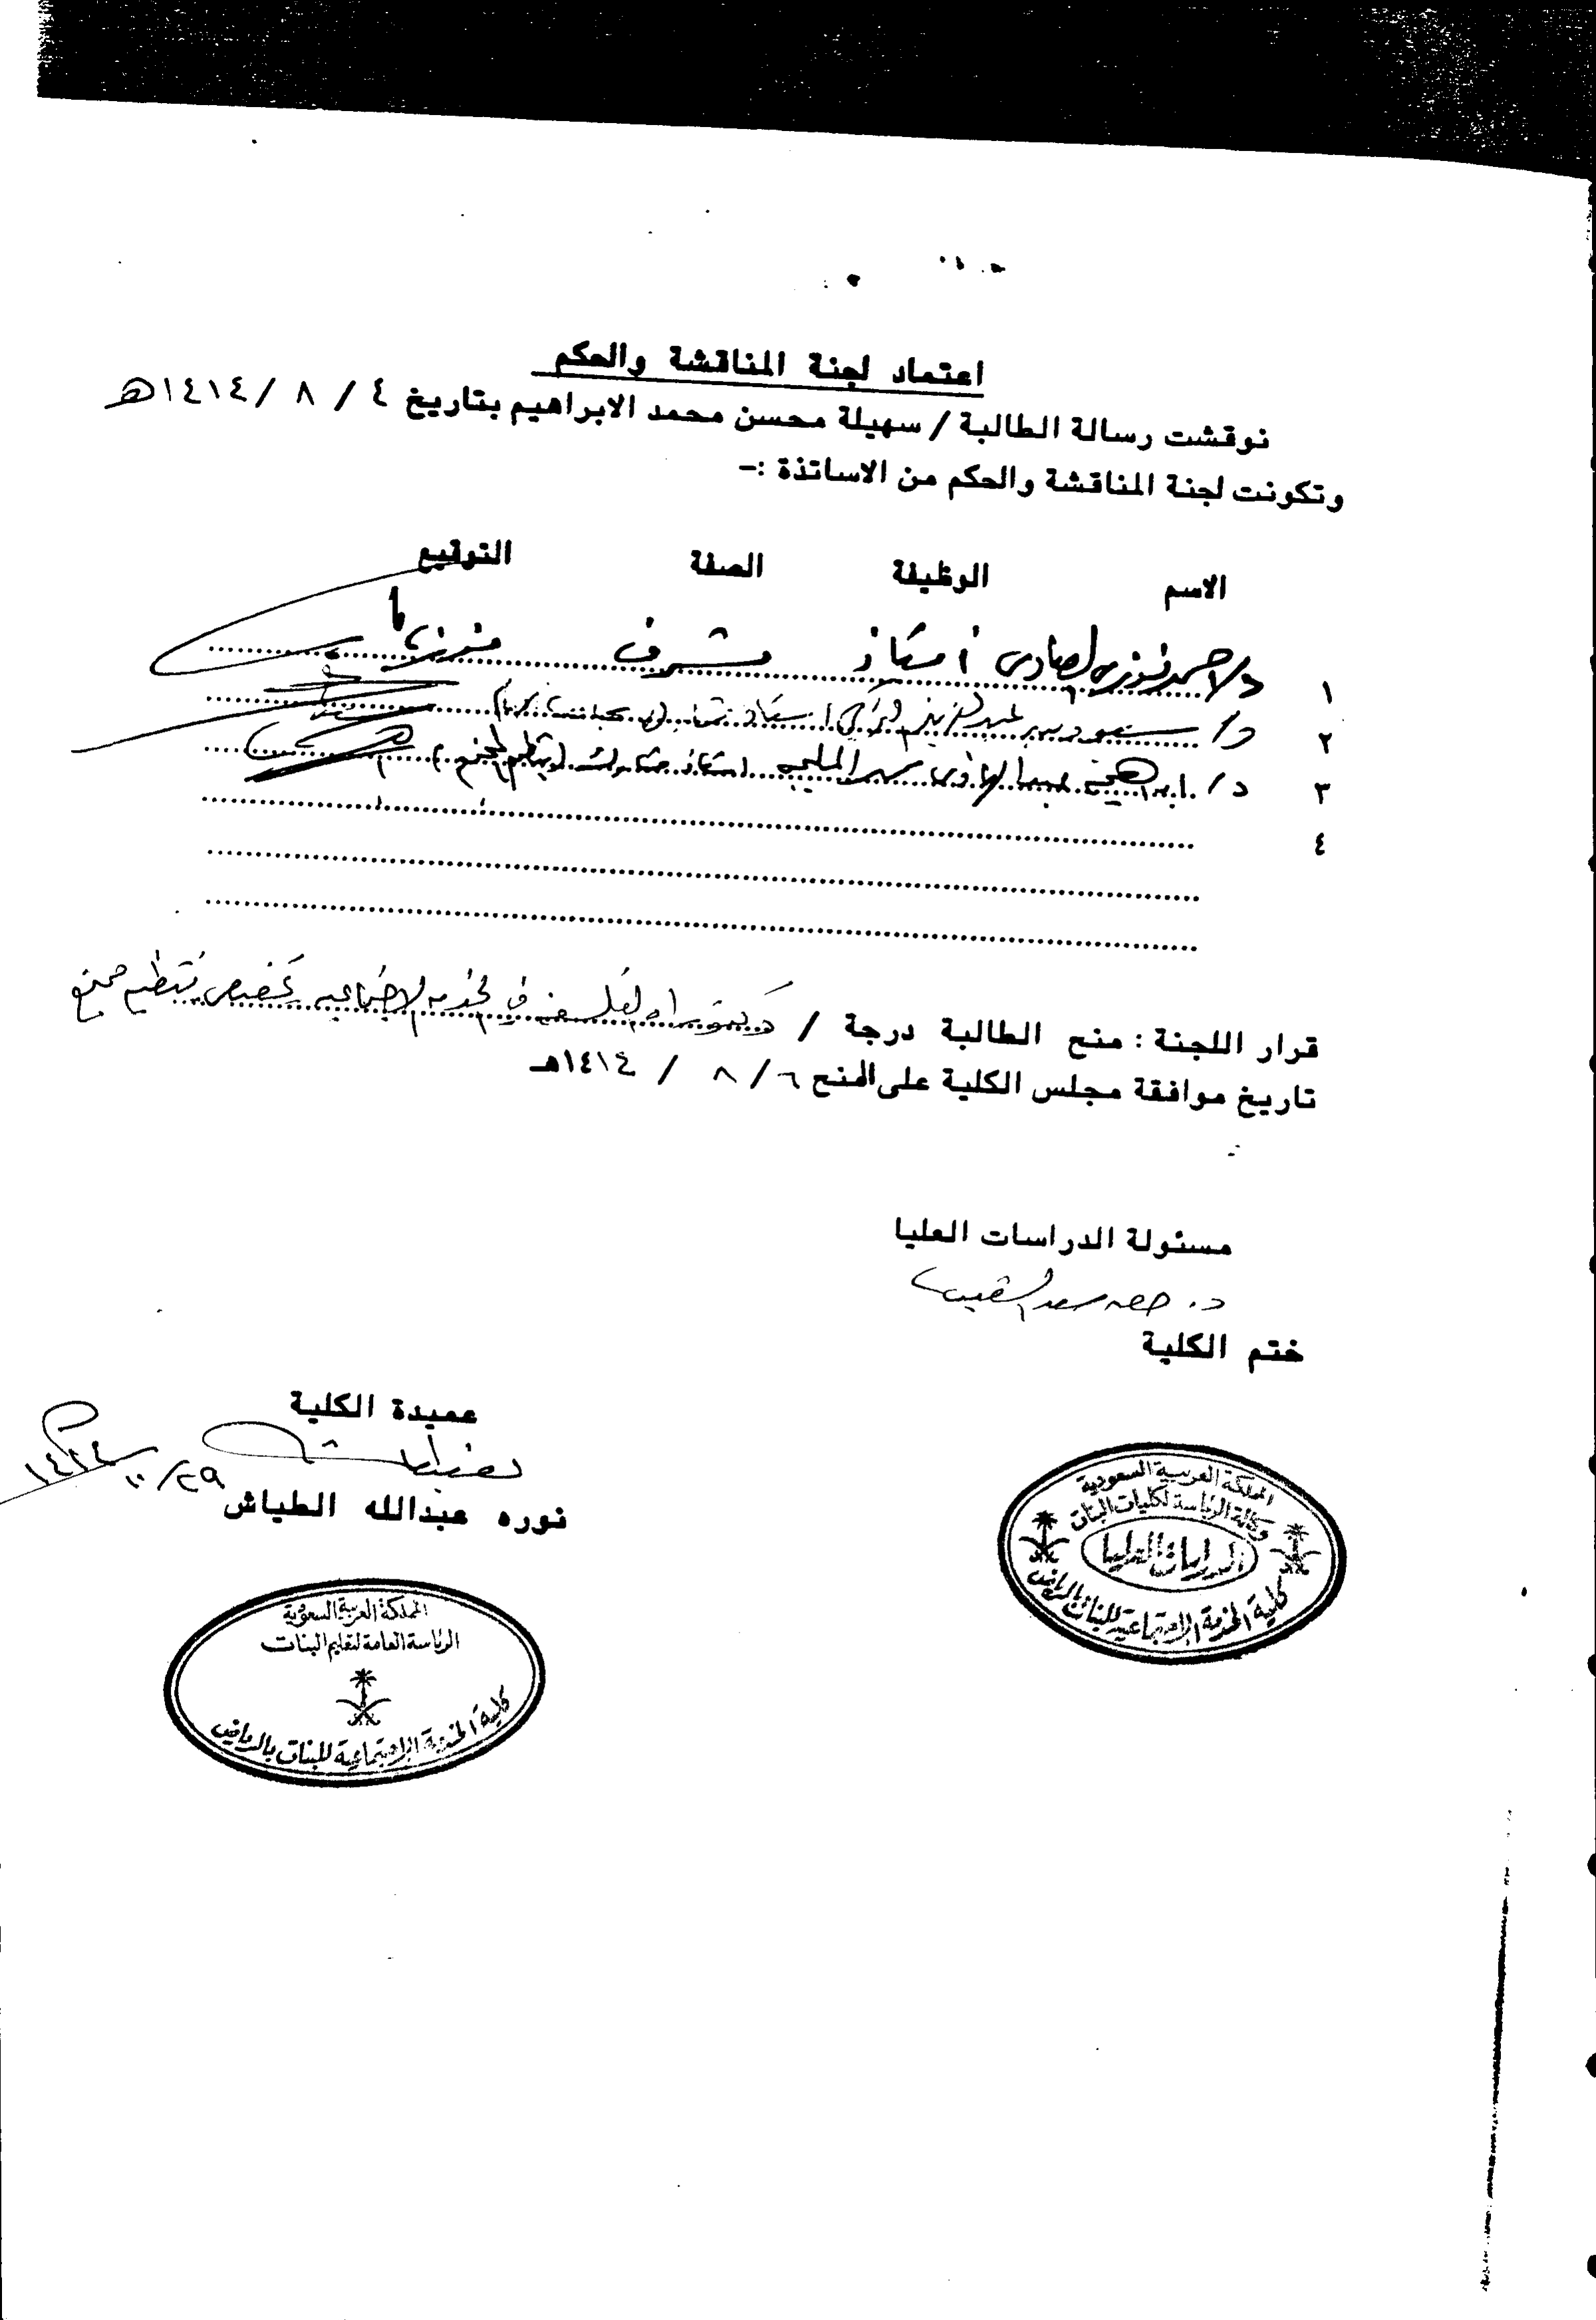 اعتماد لجنة المناقشة والحكم
نوقشت رسالة الطالبة / سهيلة محسن محمد الابراهيم بتاريخ ٤ / ٨ / ١٤١٤هـ
وتكونت لجنة المناقشة والحكم من الاساتذة :-
الاسم الوظيفة الصفة التوقيع
١ د/ احمد فوزى الصادى أستاذ مشرف
٢ د/ سعود عبد العزيز
٣ د/ ابراهيم عبد الهادى المليجى استاذ مشارك (تنظيم المجتمع)
٤
قرار اللجنة : منح الطالبة درجة / دكتوراه الفلسفة في الخدمة الاجتماعية تخصص تنظيم مجتمع
تاريخ موافقة مجلس الكلية على المنح ٦ / ٨ / ١٤١٤هـ
مسئولة الدراسات العليا
د.
ختم الكلية
عميدة الكلية
٢٩/١٠ ١٤١٤
نوره عبدالله الطياش
المملكة العربية السعودية
وكالة الرئاسة لكليات البنات
الدراسات العليا
كلية الخدمة الاجتماعية للبنات بالرياض
المملكة العربية السعودية
الرئاسة العامة لتعليم البنات
كلية الخدمة الاجتماعية للبنات بالرياض